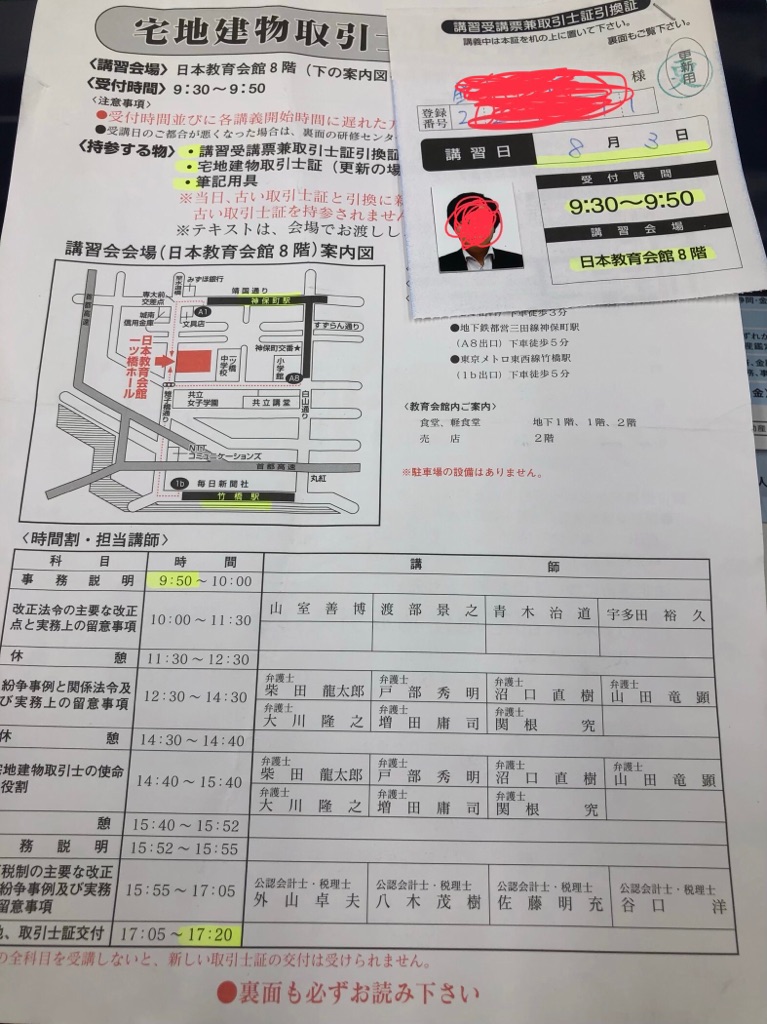 宅地建物取引士
〈講習会場〉日本教育会館8階(下の案内図
〈受付時間〉9:30～9:50
〈注意事項〉
●受付時間並びに各講義開始時間に遅れた
●受講日のご都合が悪くなった場合は、裏面の研修センタ
〈持参する物〉・講習受講票兼取引士証引換証
・宅地建物取引士証(更新の場
・筆記用具
※当日、古い取引士証と引換に新
古い取引士証を持参されませ
※テキストは、会場でお渡しし
講習受講票兼取引士証引換証
講義中は本証を机の上に置いて下さい。
裏面もご覧下さい。
更新用
様
登録番号
講習日 8月3日
受付時間
9:30～9:50
講習会場
日本教育会館8階
講習会会場(日本教育会館8階)案内図
首都高速
専大前交差点
みずほ銀行
靖国通り
神保町駅
城南信用金庫
文具店
A1
すずらん通り
神保町交番★
日本教育会館
一ツ橋ホール
一ツ橋中学校
小学館
A8
共立女子学園
共立講堂
白山通り
NTTコミュニケーションズ
首都高速
丸紅
1b
毎日新聞社
竹橋駅
下車徒歩3分
●地下鉄都営三田線神保町駅
(A8出口)下車徒歩5分
●東京メトロ東西線竹橋駅
(1b出口)下車徒歩5分
〈教育会館内ご案内〉
食堂、軽食堂 地下1階、1階、2階
売店 2階
※駐車場の設備はありません。
〈時間割・担当講師〉
科目 時間 講師
事務説明 9:50～10:00
改正法令の主な改正点と実務上の留意事項 10:00～11:30 山室善博 渡部景之 青木治道 宇多田裕久
休憩 11:30～12:30
紛争事例と関係法令及び実務上の留意事項 12:30～14:30 弁護士 柴田龍太郎 弁護士 戸部秀明 弁護士 沼口直樹 弁護士 山田竜顕
弁護士 大川隆之 弁護士 増田庸司 弁護士 関根究
休憩 14:30～14:40
宅地建物取引士の使命 役割 14:40～15:40 弁護士 柴田龍太郎 弁護士 戸部秀明 弁護士 沼口直樹 弁護士 山田竜顕
弁護士 大川隆之 弁護士 増田庸司 弁護士 関根究
憩 15:40～15:52
務説明 15:52～15:55
税制の主な改正 紛争事例及び実務 留意事項 15:55～17:05 公認会計士・税理士 外山卓夫 公認会計士・税理士 八木茂樹 公認会計士・税理士 佐藤明充 公認会計士・税理士 谷口洋
、取引士証交付 17:05～17:20
の全科目を受講しないと、新しい取引士証の交付は受けられません。
●裏面も必ずお読み下さい